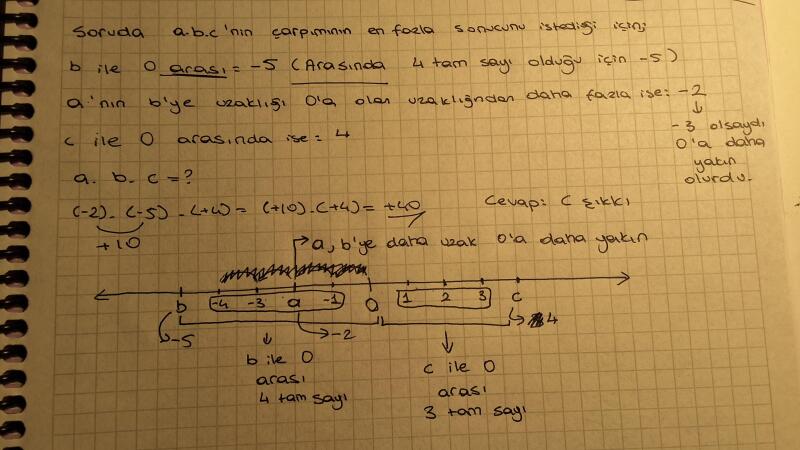 Soruda a.b.c'nin çarpımının en fazla sonucunu istediği için;
b ile 0 arası = -5 (Arasında 4 tam sayı olduğu için -5)
a'nın b'ye uzaklığı 0'a olan uzaklığından daha fazla ise: -2
-3 olsaydı
0'a daha
yakın
olurdu.
c ile 0 arasında ise: 4
a. b. c = ?
(-2). (-5) . (+4) = (+10) . (+4) = +40
Cevap: C şıkkı
+10
a, b'ye daha uzak 0'a daha yakın
b -4 -3 a -1 0 1 2 3 c
-5
-2
4
b ile 0
arası
4 tam sayı
c ile 0
arası
3 tam sayı